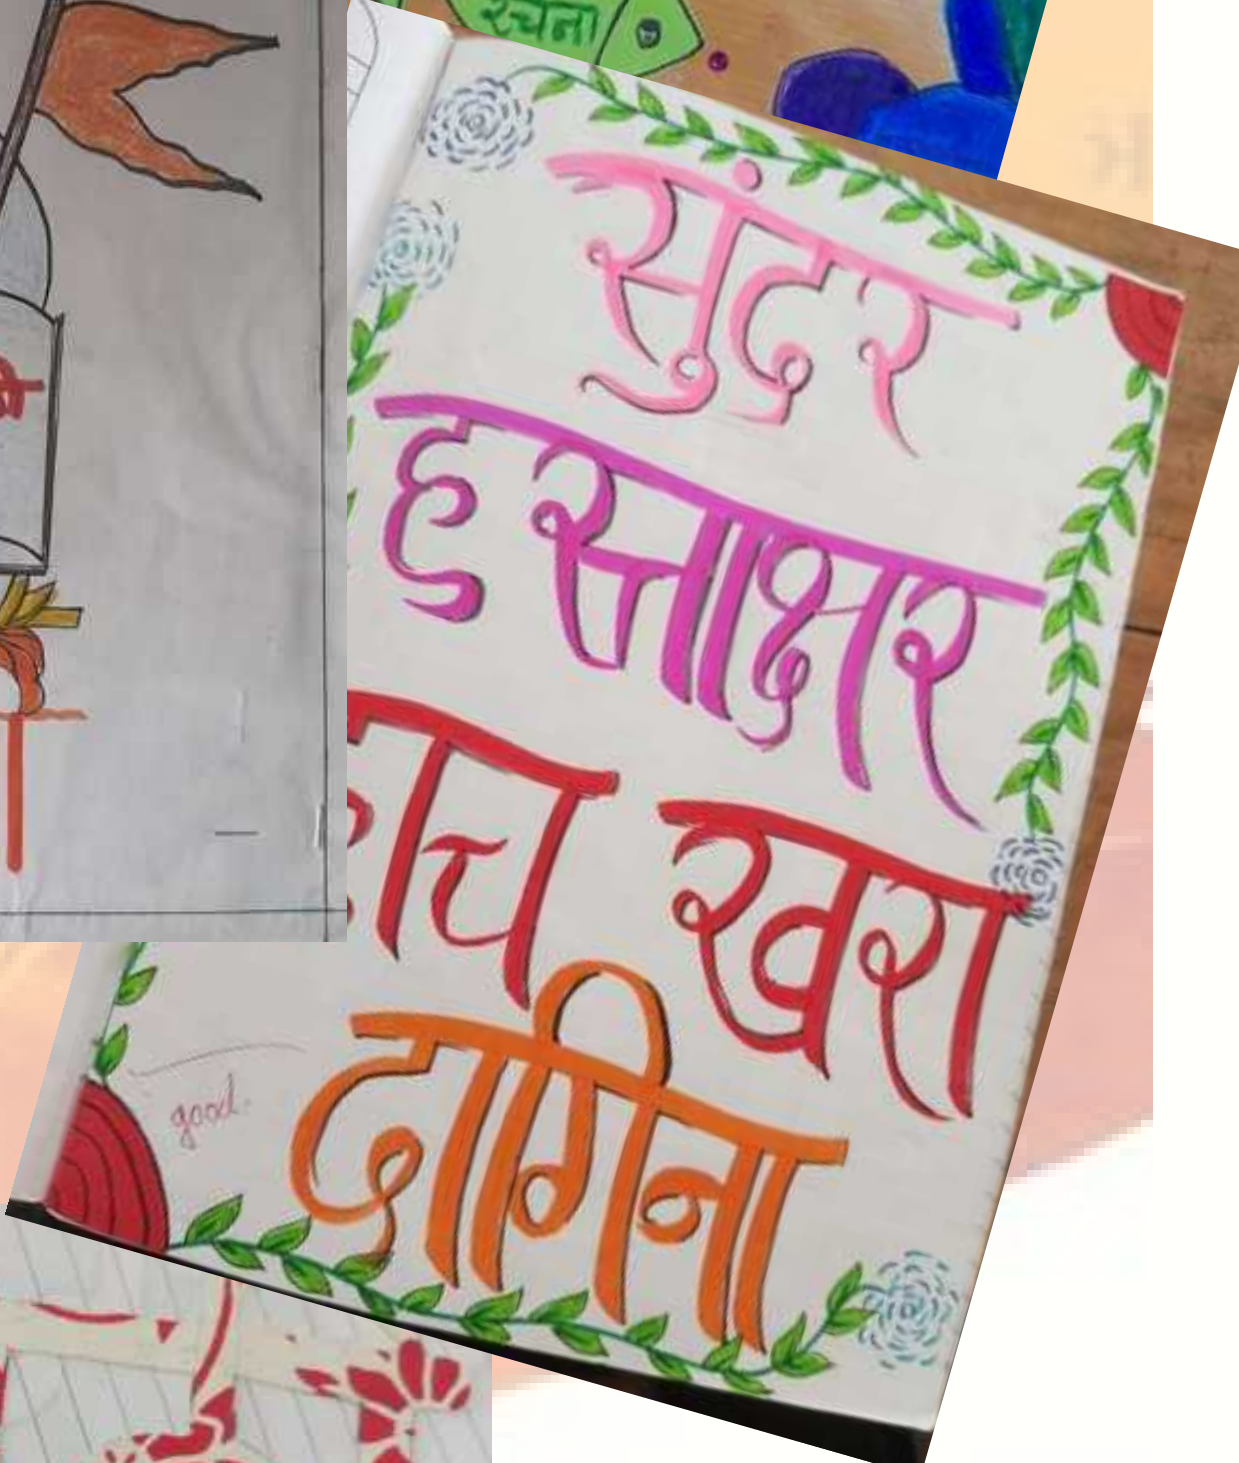 रचना
सुंदर
हस्ताक्षर
हाच खरा
दागिना
good.